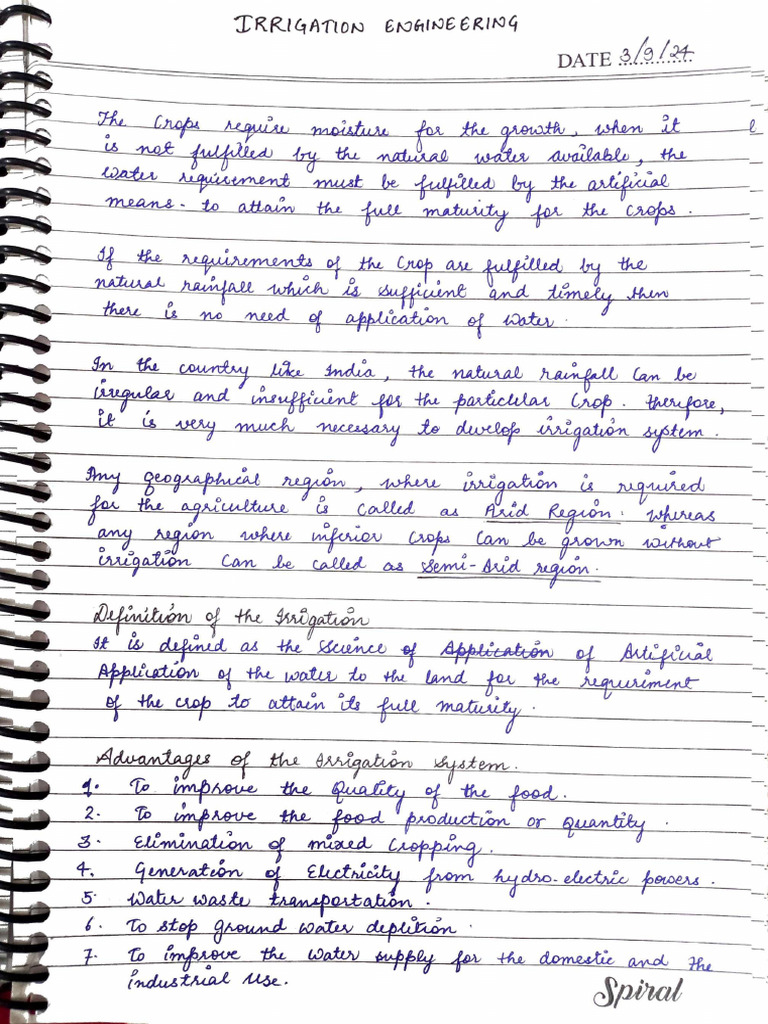 IRRIGATION ENGINEERING
DATE 3/9/24
The Crops require moisture for the growth, when it
is not fulfilled by the natural water available, the
water requirement must be fulfilled by the artificial
means - to attain the full maturity for the crops.
If the requirements of the Crop are fulfilled by the
natural rainfall which is sufficient and timely then
there is no need of application of water.
In the country like India, the natural rainfall can be
irregular and insufficient for the particlular Crop. therefore,
it is very much necessary to develop irrigation system.
Any geographical region, where irrigation is required
for the agriculture is called as Arid Region. whereas
any region where inferior crops can be grown without
irrigation can be called as Semi-Arid region.
Definition of the Irrigation
It is defined as the Sscience of Application of Artificial
Application of the water to the land for the requriment
of the crop to attain its full maturity.
Advantages of the Irrigation System.
1. To improve the Quality of the food.
2. To improve the food production or quantity.
3. Elimination of mixed Cropping.
4. Generation of Electricity from hydro-electric powers.
5. Water waste transportation.
6. To stop ground water deplition.
7. To improve the water supply for the domestic and the
industrial use.
Spiral